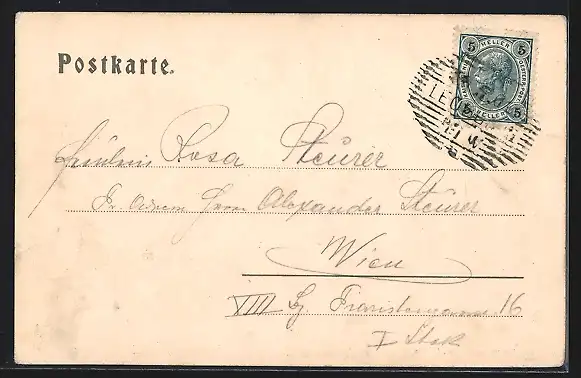 Postkarte.
5 HELLER 5
LEO
Fräulein Rosa Steurer
Herrn Alexander Steurer
Wien
VIII Bz Piaristengasse 16
I Stock